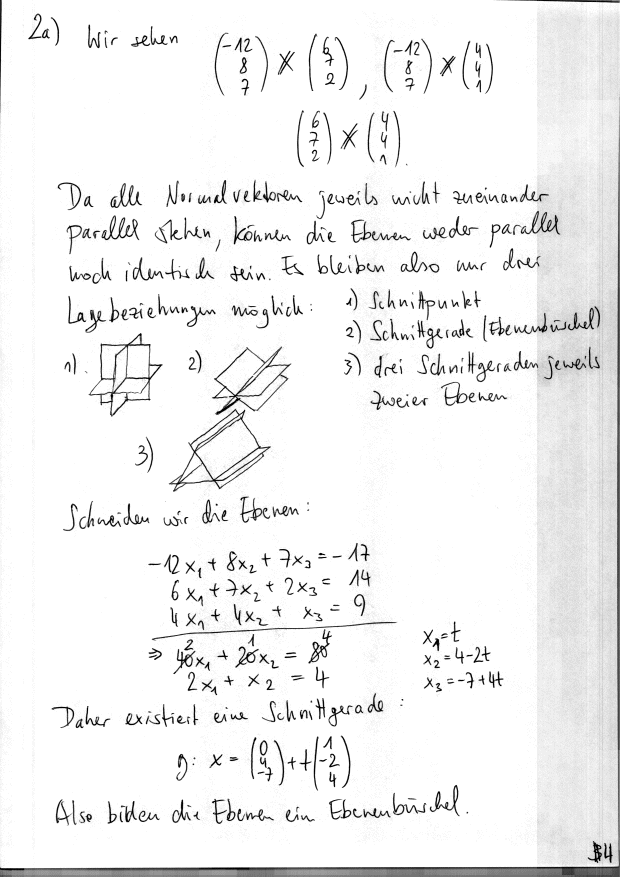 2a) Wir sehen (-12 8 7) ∦ (6 7 2), (-12 8 7) ∦ (4 4 1)
(6 7 2) ∦ (4 4 1).
Da alle Normalvektoren jeweils nicht zueinander
parallel stehen, können die Ebenen weder parallel
noch identisch sein. Es bleiben also nur drei
Lagebeziehungen möglich:
1) Schnittpunkt
2) Schnittgerade (Ebenenbüschel)
3) drei Schnittgeraden jeweils
zweier Ebenen
1).
2)
3)
Schneiden wir die Ebenen:
-12x₁ + 8x₂ + 7x₃ = -17
6x₁ + 7x₂ + 2x₃ = 14
4x₁ + 4x₂ + x₃ = 9
⇒ 40 2 x₁ + 20 1 x₂ = 80 4
2x₁ + x₂ = 4
x₁ = t
x₂ = 4-2t
x₃ = -7+4t
Daher existiert eine Schnittgerade:
g: x = (0 4 -7) + t (1 -2 4)
Also bilden die Ebenen ein Ebenenbüschel.